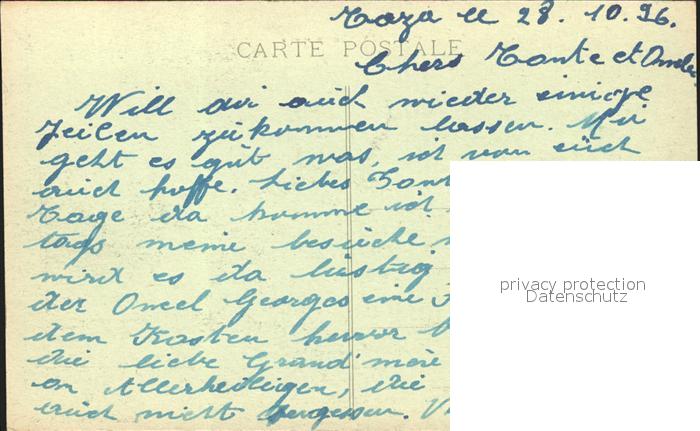 Taza le 28. 10. 36.
CARTE POSTALE
Chers Tante et Oncle
Will dir auch wieder einige
Zeilen zukommen lassen. Mir
geht es gut was, ich von euch
auch hoffe. Liebes Tant
Tage da komme ich
tags meine besuche
wird es da lustig
der Oncel Georges eine
dem Kasten hervor
die liebe Grand'mère
an Allerheiligen, die
auch nicht vergessen. V
privacy protection
Datenschutz